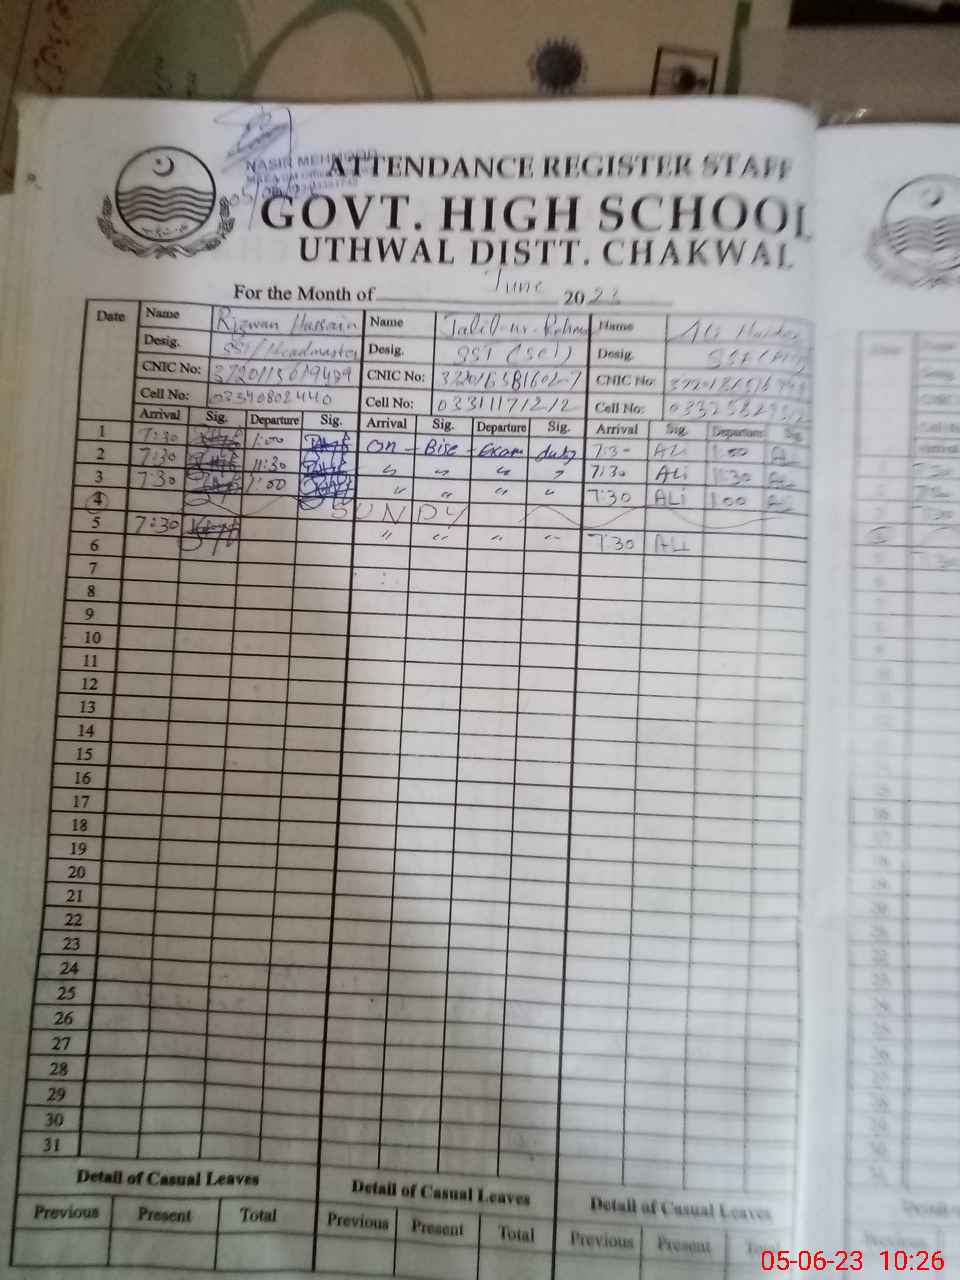 NASIR MEHMOOD
ATTENDANCE REGISTER STAFF
GOVT. HIGH SCHOOL
UTHWAL DISTT. CHAKWAL
For the Month of June 2023
Date Name Rizwan Hussain Name Talib-ur-Rehma Name Ali Haider
Desig. SST/Headmaster Desig. SST (Sci) Desig.
CNIC No: CNIC No: CNIC No:
Cell No: 03340802440 Cell No: 03311171212 Cell No:
Arrival Sig. Departure Sig. Arrival Sig. Departure Sig. Arrival Sig. Departure Sig.
1 7:30 1:00 On - Bise - Exam duty 7:30 ALi 1:00 ALi
2 7:30 11:30 " " " " 7:30 ALi 11:30 ALi
3 7:30 1:00 " " " " 7:30 ALi 1:00 ALi
4 SUNDY
5 7:30 " " " " 7:30 ALi
6
7
8
9
10
11
12
13
14
15
16
17
18
19
20
21
22
23
24
25
26
27
28
29
30
31
Detail of Casual Leaves Detail of Casual Leaves Detail of Casual Leaves
Previous Present Total Previous Present Total Previous Present Total
05-06-23 10:26